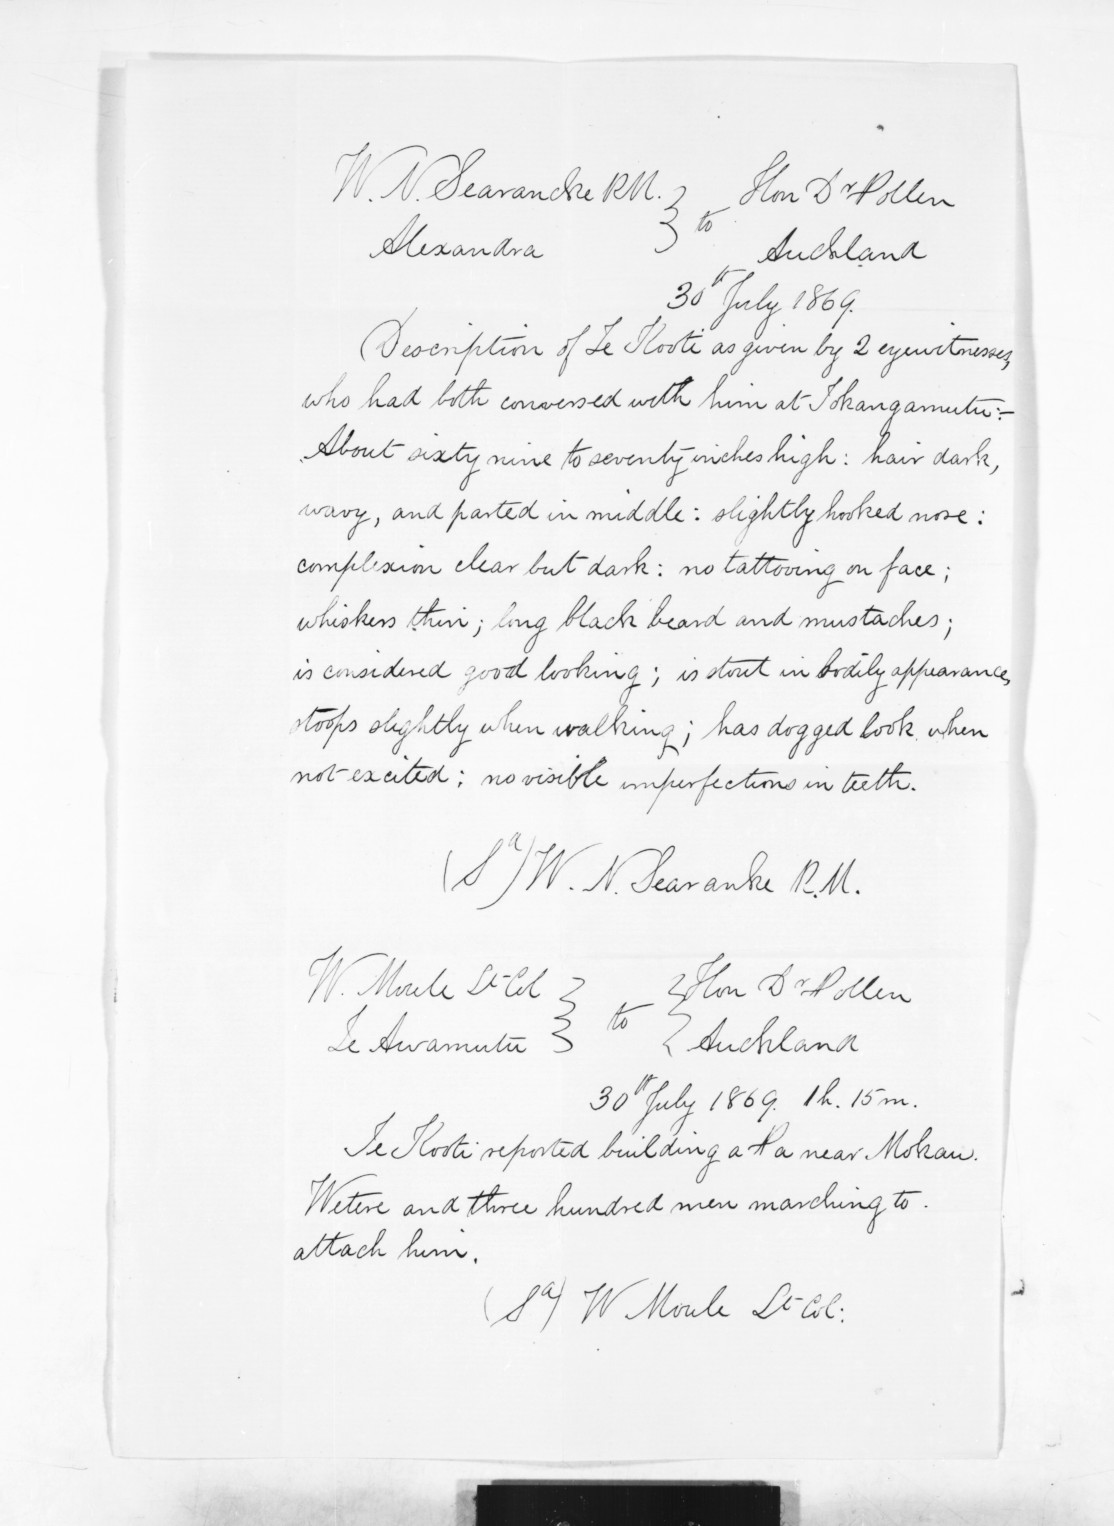 W. N. Searancke R.M. } to Hon Dr Pollen
Alexandra Auckland
30th July 1869.
Description of Te Kooti as given by 2 eyewitnesses,
who had both conversed with him at Tokangamutu:-
About sixty nine to seventy inches high: hair dark,
wavy, and parted in middle: slightly hooked nose:
complexion clear but dark: no tattooing on face;
whiskers thin; long black beard and mustaches;
is considered good looking; is stout in bodily appearance,
stoops slightly when walking; has dogged look when
not excited; no visible imperfections in teeth.
(Sd) W. N. Searanke R.M.
W. Moule Lt Col } to { Hon Dr Pollen
Te Awamutu Auckland
30th July 1869. 1h. 15m.
Te Kooti reported building a Pa near Mokau.
Wetere and three hundred men marching to
attack him.
(Sd) W Moule Lt Col: